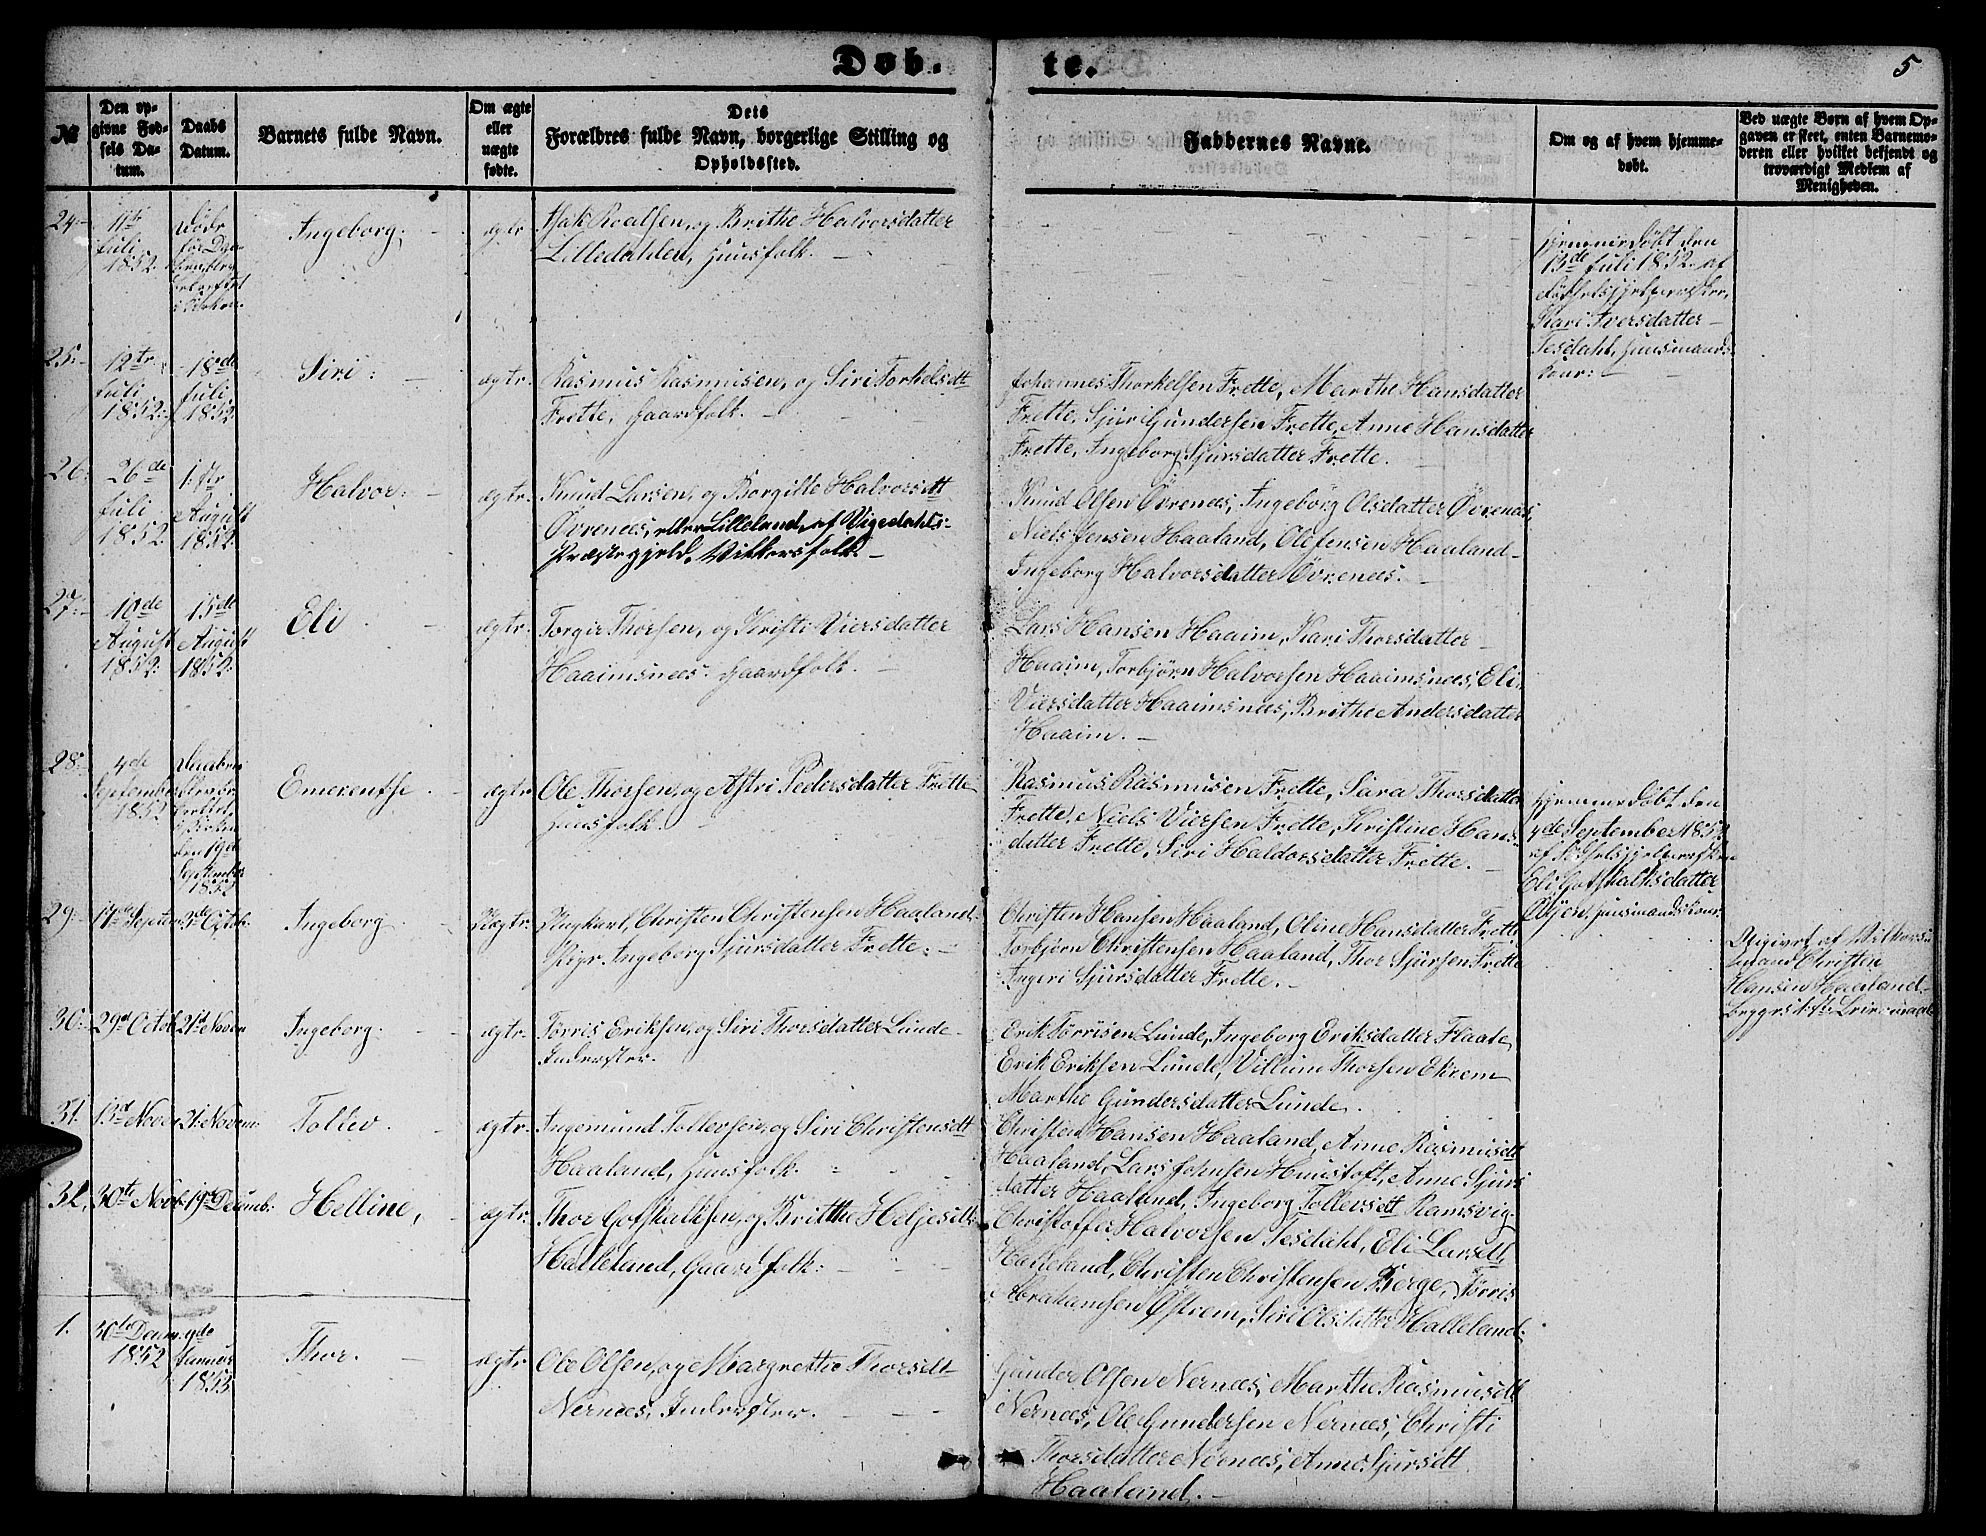 Døb- te. 5
№
Den op-
givne Fød-
sels Da-
tum.
Daabs
Datum.
Barnets fulde Navn.
Om ægte
eller
uægte
fødte.
Dets
Forældres fulde Navn, borgerlige Stilling og
Opholdssted.
Faddernes Navne.
Om og af hvem hjemme-
døbt.
Ved uægte Børn af hvem Op-
gaven er skeet, enten Barnemo-
deren eller hvilket bekjendt og
troværdigt Medlem af
Menigheden.
24.
11te
Juli
1852.
Døde
før
Ingeborg.
ægte
Isak Roalsen, og Brithe Halvorsdatter
Lilledahlen, Huusfolk.
hjemmedøbt den
13de Juli 1852. af
Kari Iversdatter
Tesdahl, Huusmands
kone:
25.
12te
Juli
1852.
18de
Juli
1852.
Siri:
ægte
Rasmus Rasmusen, og Siri Torkelsdtt
Frette, Gaardfolk.
Johannes Thorkelsen Frette, Marthe Hansdatter
Frette, Sjur Gundersen Frette, Anne Hansdatter
Frette, Ingeborg Sjursdatter Frette.
26.
26de
Juli
1852
1ste
August
1852.
Halvor.
ægte.
Knud Larsen, og Borgille Halvorsdtt
Øvrenæs, eller Lilleland, af Vigedahls
Præstegjeld, Vilkorsfolk.
Knud Olsen Øvrenæs, Ingeborg Olsdatter Øvrenæs,
Niels Jensen Haaland, Ole Jensen Haaland
Ingeborg Halvorsdatter Øvrenæs.
27.
10de
August
1852.
15de
August
1852.
Eli
ægte.
Torgir Thorsen, og Kristi Viersdatter
Haaimsnæs. Gaardfolk.
Lars Hansen Haaim, Kari Thorsdatter
Haaim, Torbjørn Halvorsen Haaimsnæs, Eli
Viersdatter Haaimsnæs, Brithe Andersdatter
Haaim.
28.
4de
September
1852
Daaben
i Kirken
den 19de
September
1852
Emerentse
ægte
Ole Thorsen, og Astri Pedersdatter Frette
Huusfolk.
Rasmus Rasmusen Frette, Sara Thorsdatter
Frette, Niels Viersen Frette, Kristine Hans-
datter Frette, Siri Haldorsdatter Frette.
hjemmedøbt den
September 1852
Eli Gotskalksdatter
Huusmandskone
29
17de Septem
3de Octob.
Ingeborg
Uægte.
Ungkarl, Christen Christensen Haaland,
Pigr. Ingeborg Sjursdatter Frette.
Christen Hansen Haaland, Oline Hansdatter Frette
Torbjørn Christensen Haaland, Thor Sjursen Frette
Ingeri Sjursdatter Frette.
Opgivet af Vilkors-
mand Christen
Hansen Haaland.
30.
29d Octob.
21d Novem
Ingeborg.
ægte.
Tørris Eriksen, og Siri Thorsdatter Lunde
Inderster.
Erik Tørrisen Lunde, Ingeborg Eriksdatter Flaate,
Erik Eriksen Lunde, Villum Thorsen Ekrem
Marthe Gundersdatter Lunde.
31.
13d Nove
21. Novem:
Tollev.
ægte.
Ingemund Tollevsen, og Siri Christensdtt
Haaland, Huusfolk.
Christen Hansen Haaland, Anne Rasmusdtt
Haaland, Lars Johnsen Huustoft, Anne Sjurs
datter Haaland, Ingeborg Tollevsdtt Ramsvig.
32.
30te Novb.
19de Decemb:
Helline,
ægte.
Thor Gotskalksen, og Britthe Heljesdtt:
Halleland, Gaardfolk:
Christoffer Halvorsen Tesdahl, Eli Larsdtt,
Halleland, Christen Christensen Berge, Tørris
Abrahamsen Østrem, Siri Olsdatter Halleland.
1.
30te Decem.
1852
Januar
1853
Thor.
ægte
Ole Olsen, og Margrethe Thorsdtt
Nernæs, Inderster.
Gunder Olsen Nernæs, Marthe Rasmusdtt
Nernæs, Ole Gundersen Nernæs, Christi
Thorsdatter Nernæs, Anne Sjursdtt
Haaland.